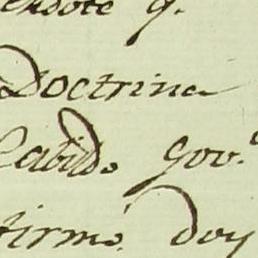 endote q.
Doctrina
Cabildo Gov.
firmé. doy